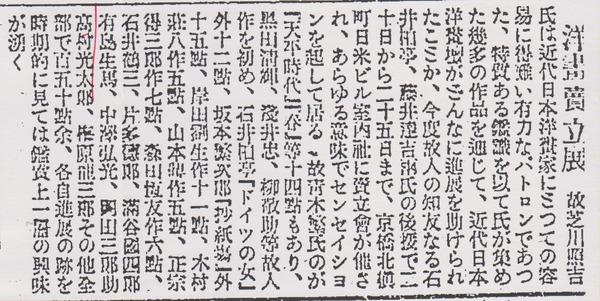 洋畵賣立展 故芝川照吉
氏は近代日本洋畫家にとつての容
易に得難い有力なパトロンであつ
た、特質ある鑑識を以て氏が集め
た幾多の作品を通じて、近代日本
洋畫壇がどんなに進展を助けられ
たことか、今度故人の知友なる石
井柏亭、藤井達吉兩氏の後援で二
十日から二十五日まで、京橋北槇
町日米ビル室内社に賣立會が催さ
れ、あらゆる意味でセンセイショ
ンを起して居る 故靑木繁氏のが
「天平時代」「春」等十四點もあり、
黑田淸輝、淺井忠、柳敬助等故人
の作を初め、石井柏亭「ドイツの女」
外十二點、坂本繁次郎「抄紙場」外
十五點、岸田劉生作十一點、木村
莊八作五點、山本鼎作五點、正宗
得三郎作七點、森田恒友作六點、
石井鶴三、片多德郎、滿谷國四郎
有島生馬、中澤弘光、岡田三郞助
高村光太郎、梅原龍三郎その他全
部で百五十點余、各自進展の跡を
時期的に見ては鑑賞上一層の興味
が湧く